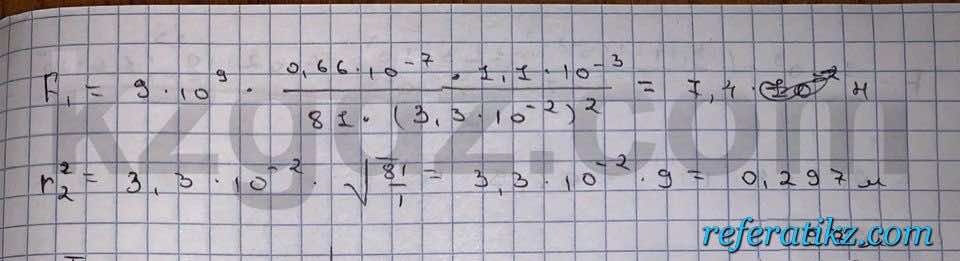 F₁ = 9 · 10⁹ · (0,66 · 10⁻⁷ · 1,1 · 10⁻³) / (81 · (3,3 · 10⁻²)²) = 7,4 · Н
r₂² = 3,3 · 10⁻² · √(81/1) = 3,3 · 10⁻² · 9 = 0,297 м
kzgdz.com
referatikz.com